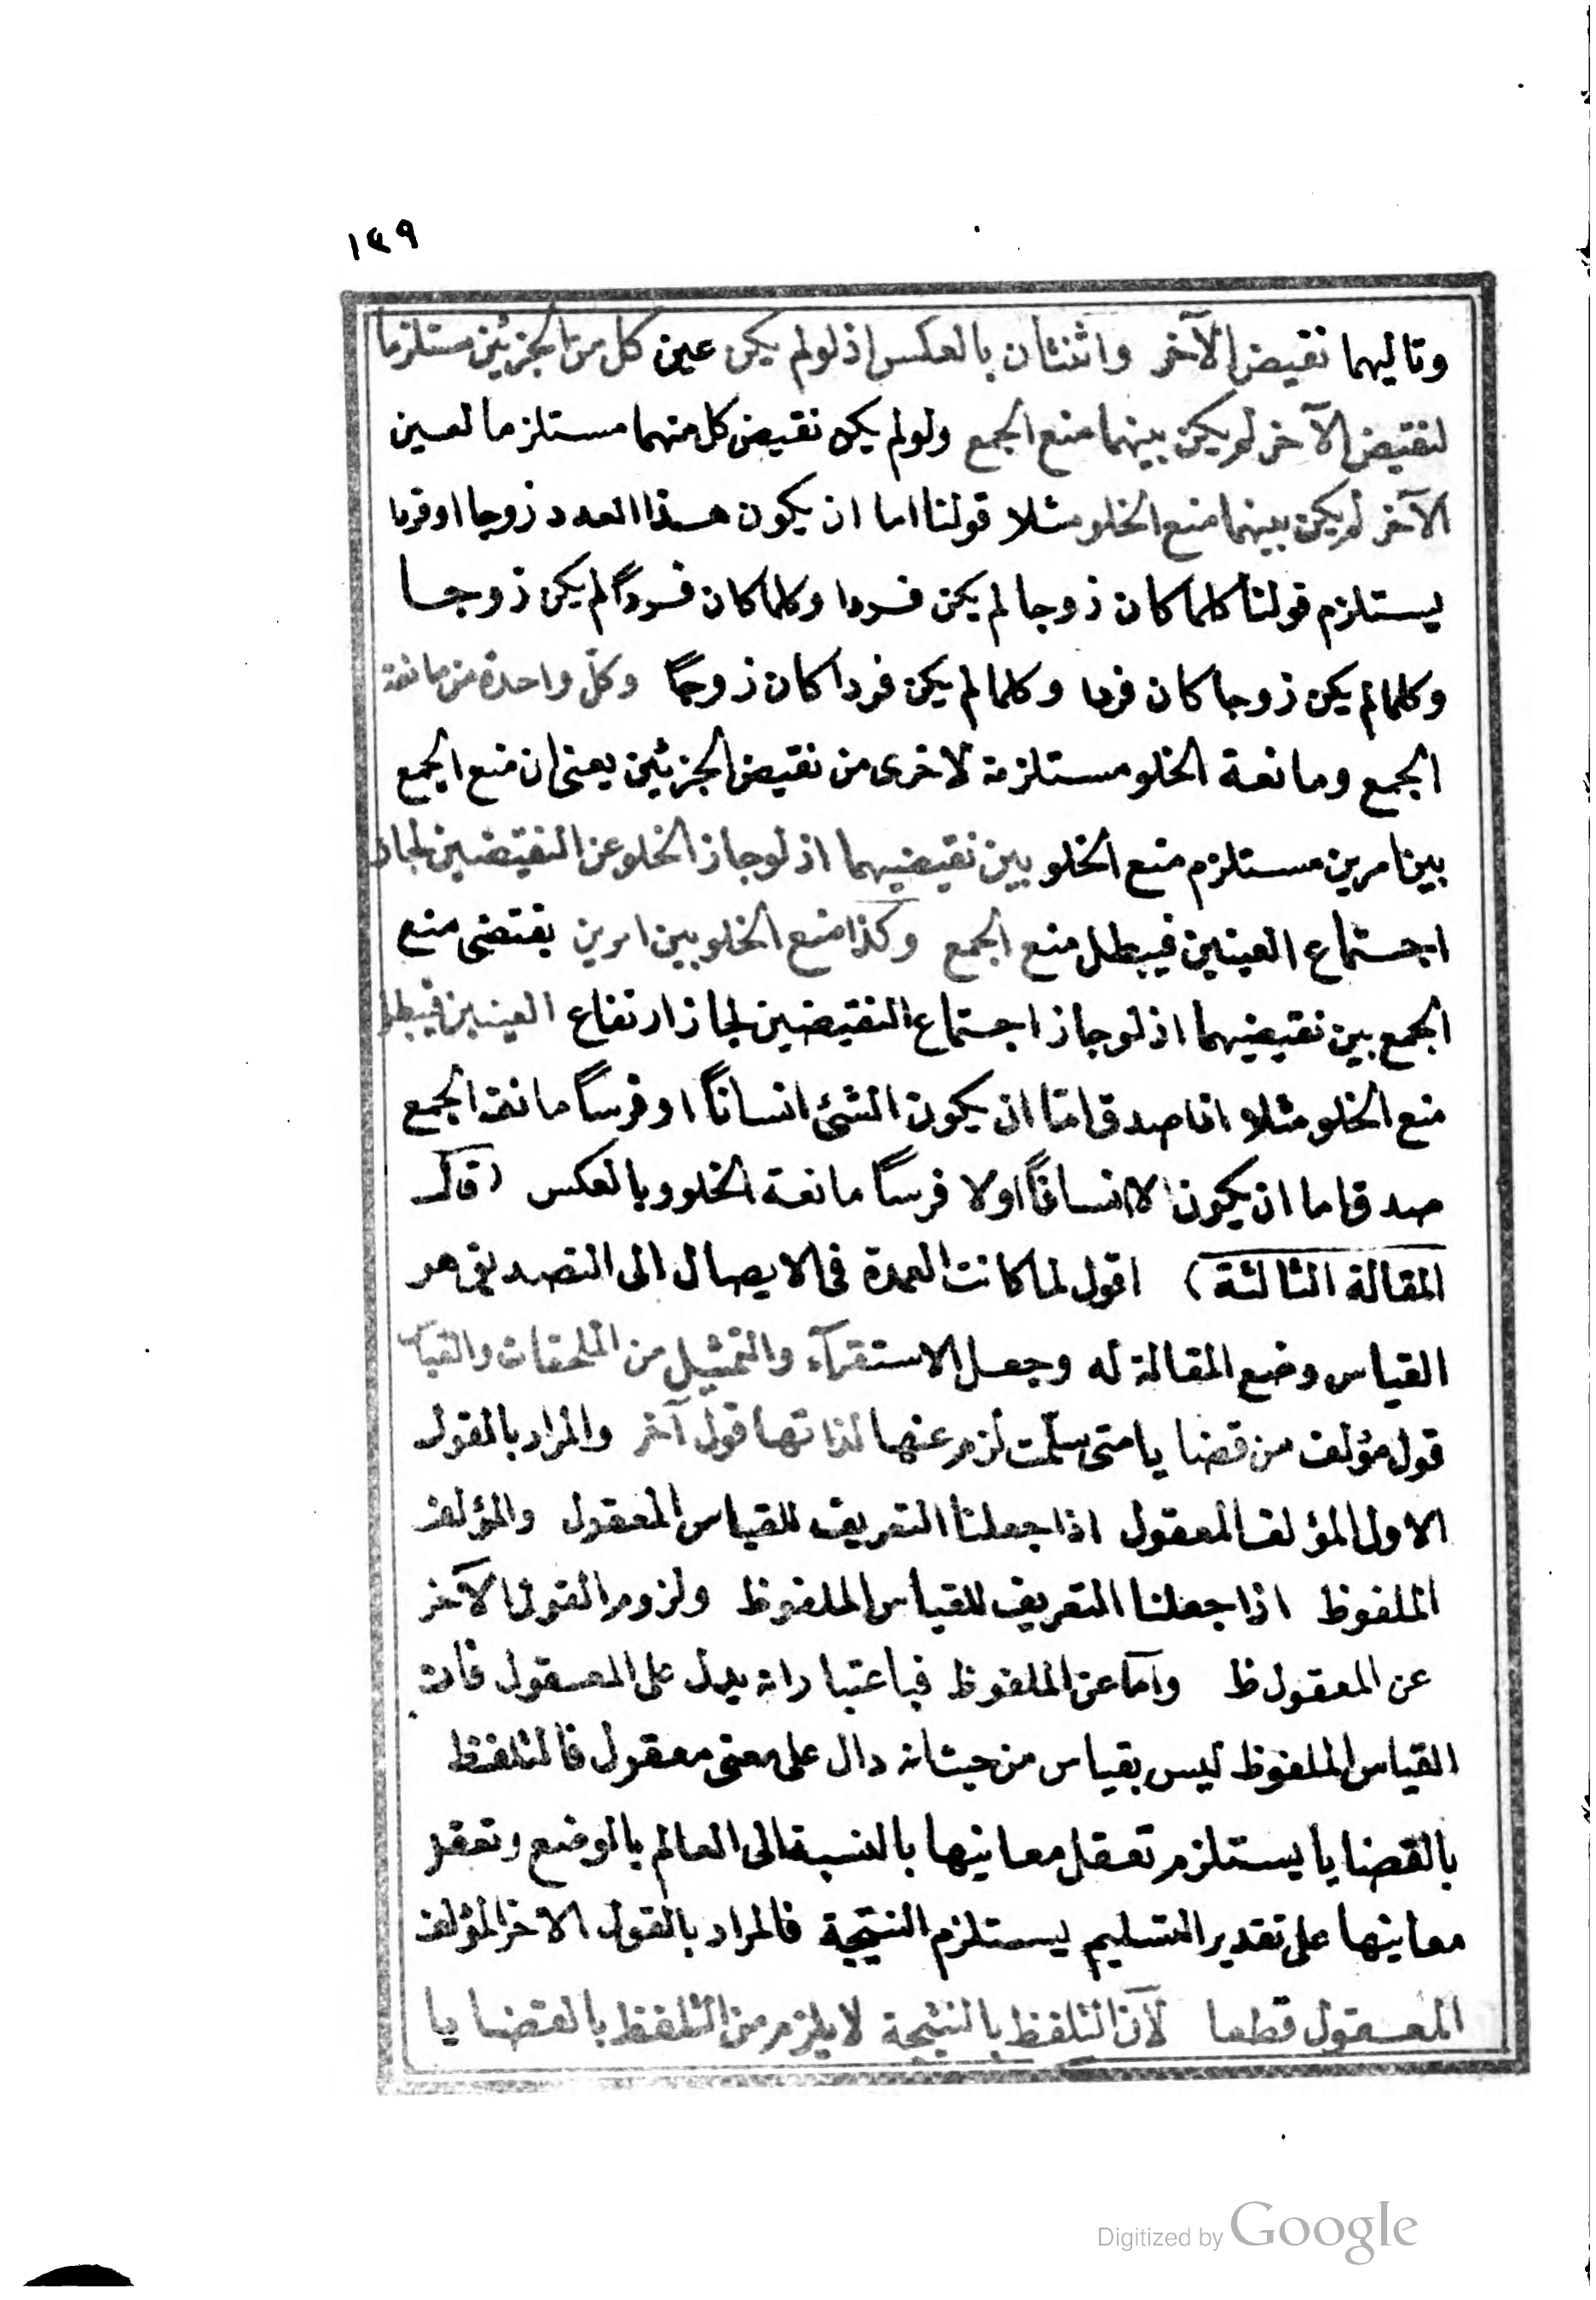 ١٤٩
وتاليهما نقيض الآخر واثنتان بالعكس اذ لو لم يكن عين كل من الجزئين مستلزما
لنقيض الآخر لم يكن بينهما منع الجمع ولو لم يكن نقيض كل منهما مستلزما لعين
الآخر لم يكن بينهما منع الخلو مثلا قولنا اما ان يكون هذا العدد زوجا او فردا
يستلزم قولنا كلما كان زوجا لم يكن فردا وكلما كان فرداً لم يكن زوجا
وكلما لم يكن زوجا كان فردا وكلما لم يكن فردا كان زوجًا وكلّ واحدة من مانعة
الجمع ومانعة الخلو مستلزمة لاخرى من نقيض الجزئين يعنى ان منع الجمع
بين امرين مستلزم منع الخلو بين نقيضيهما اذ لو جاز الخلو عن النقيضين لجاز
اجتماع العينين فيبطل منع الجمع وكذا منع الخلو بين امرين يقتضى منع
الجمع بين نقيضيهما اذ لو جاز اجتماع النقيضين لجاز ارتفاع العينين فيبطل
منع الخلو مثلا اذا صدق امّا ان يكون الشئ انساناً او فرساً مانعة الجمع
صدق اما ان يكون لا انساناً او لا فرساً مانعة الخلو وبالعكس (قال
المقالة الثالثة) اقول لما كانت العمدة فى الايصال الى التصديق هو
القياس وضع المقالة له وجعل الاستقرآء والتمثيل من الملحقات والقياس
قول مؤلف من قضايا متى سلّمت لزم عنها لذاتها قول آخر والمراد بالقول
الاول المؤلف المعقول اذا جعلنا التعريف للقياس المعقول والمؤلف
الملفوظ اذا جعلنا التعريف للقياس الملفوظ ولزوم القول الآخر
عن المعقول ظ وامّا عن الملفوظ فباعتبار انه يدل على المعقول فان
القياس الملفوظ ليس بقياس من حيث انه دال على معنى معقول فالتلفظ
بالقضايا يستلزم تعقل معانيها بالنسبة الى العالم بالوضع وتعقل
معانيها على تقدير التسليم يستلزم النتيجة فالمراد بالقول الاخر المؤلف
المعقول قطعا لانّ التلفظ بالنتيجة لا يلزم من التلفظ بالقضايا
Digitized by Google